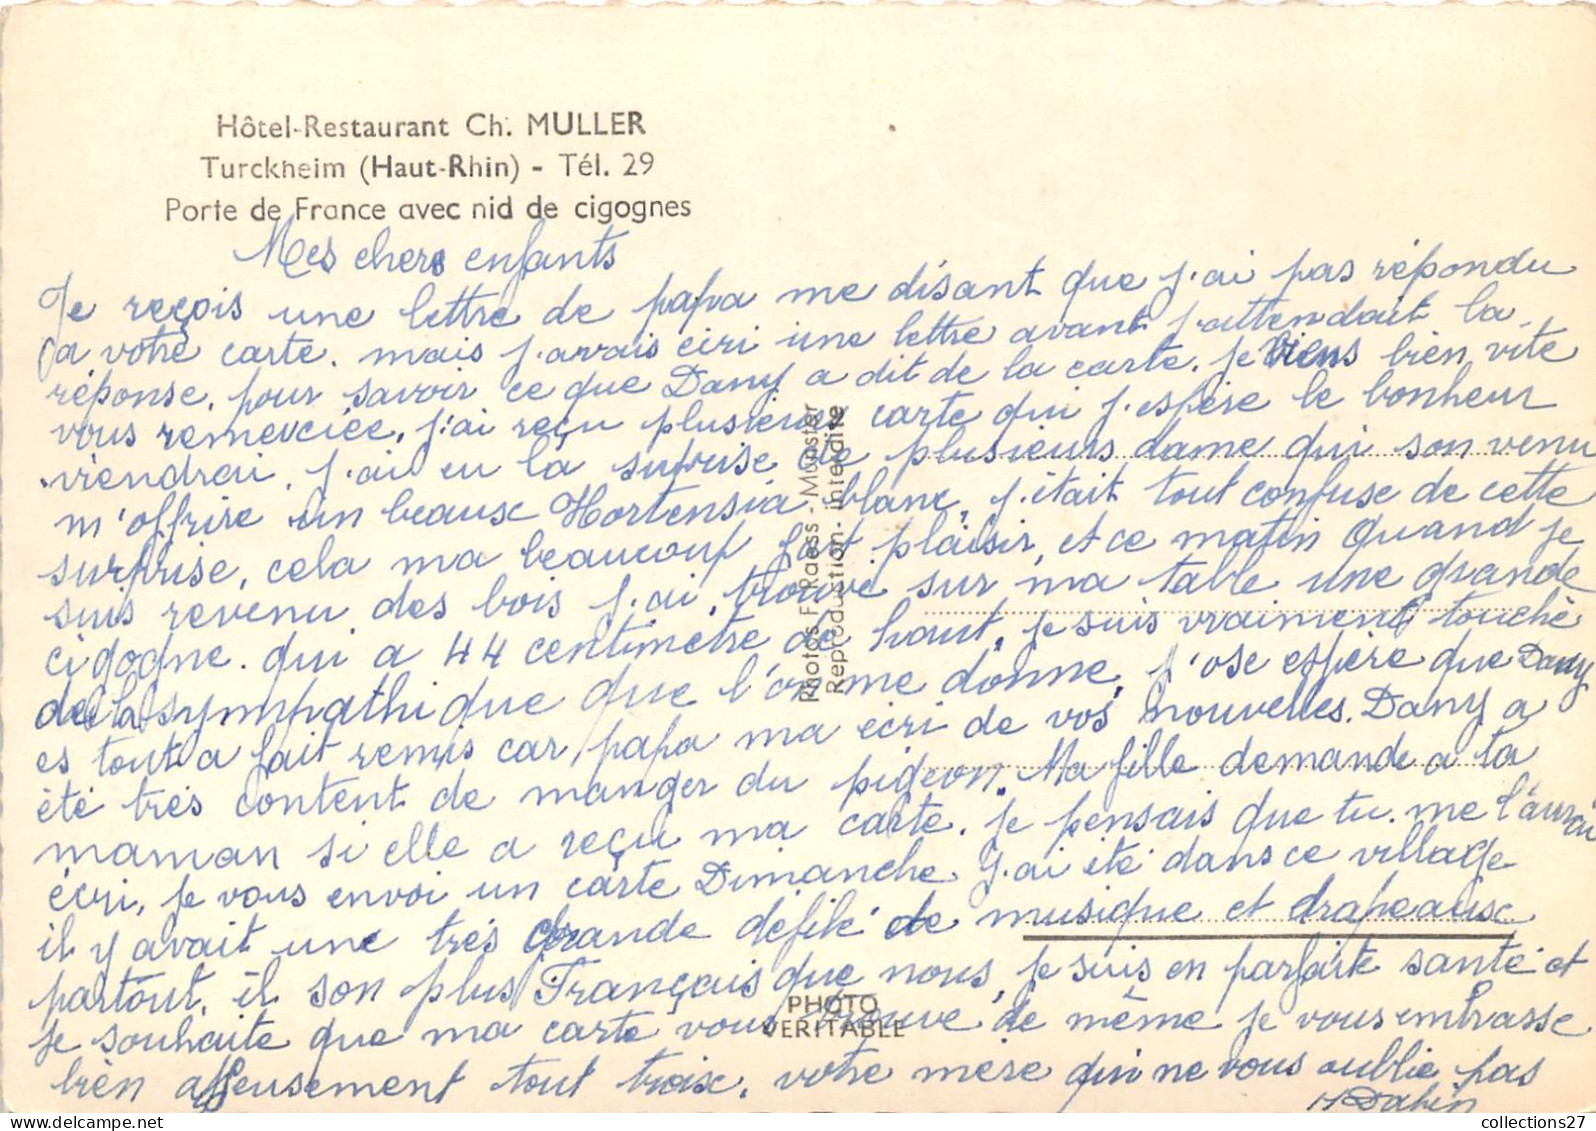 Hôtel-Restaurant Ch. MULLER
Turckheim (Haut-Rhin) - Tél. 29
Porte de France avec nid de cigognes
Mes chers enfants
Je reçois une lettre de papa me disant que j'ai pas répondu
a votre carte. mais j'avais ecri une lettre avant j'attendait la
réponse. pour savoir ce que Dany a dit de la carte. je viens bien vite
vous remerciée, j'ai reçu plusieurs carte qui j'espère le bonheur
viendrai, j'ai eu la suprise de plusieurs dame qui son venu
m'offrire un beaux Hortensia blanc, j'était tout confuse de cette
surprise, cela ma beaucoup fait plaisir, et ce matin quand je
suis revenu des bois j'ai trouvé sur ma table une grande
cigogne. qui a 44 centimetre de haut, je suis vraiment touché
de la sympathique que l'on me donne, j'ose espère que Dany
es tout a fait remis car papa ma écri de vos nouvelles. Dany a
été très content de manger du pigeon. Ma fille demande a ta
maman si elle a reçu ma carte. je pensais que tu me l'aurai
écri, je vous envoi un carte Dimanche j'ai été dans ce village
il y avait une très grande défilé de musique et drapeaux
partout, il son plus Français que nous, je suis en parfaite santé et
je souhaite que ma carte vous trouve de même je vous embrasse
bien affeusement tout troix. votre mère qui ne vous oublie pas
Photos F. Raess - Munster
Reproduction interdite
PHOTO
VERITABLE
collections27